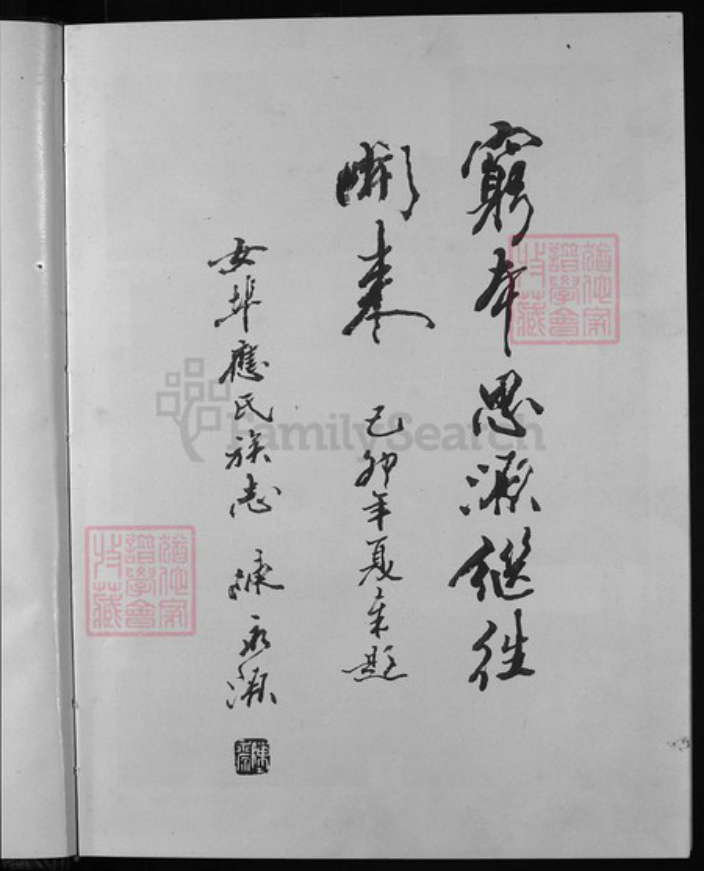 窮本思源繼往
開来 己卯年夏題
女埠應氏族志 陳永源
猶他家
譜學會
收藏
猶他家
譜學會
收藏
FamilySearch